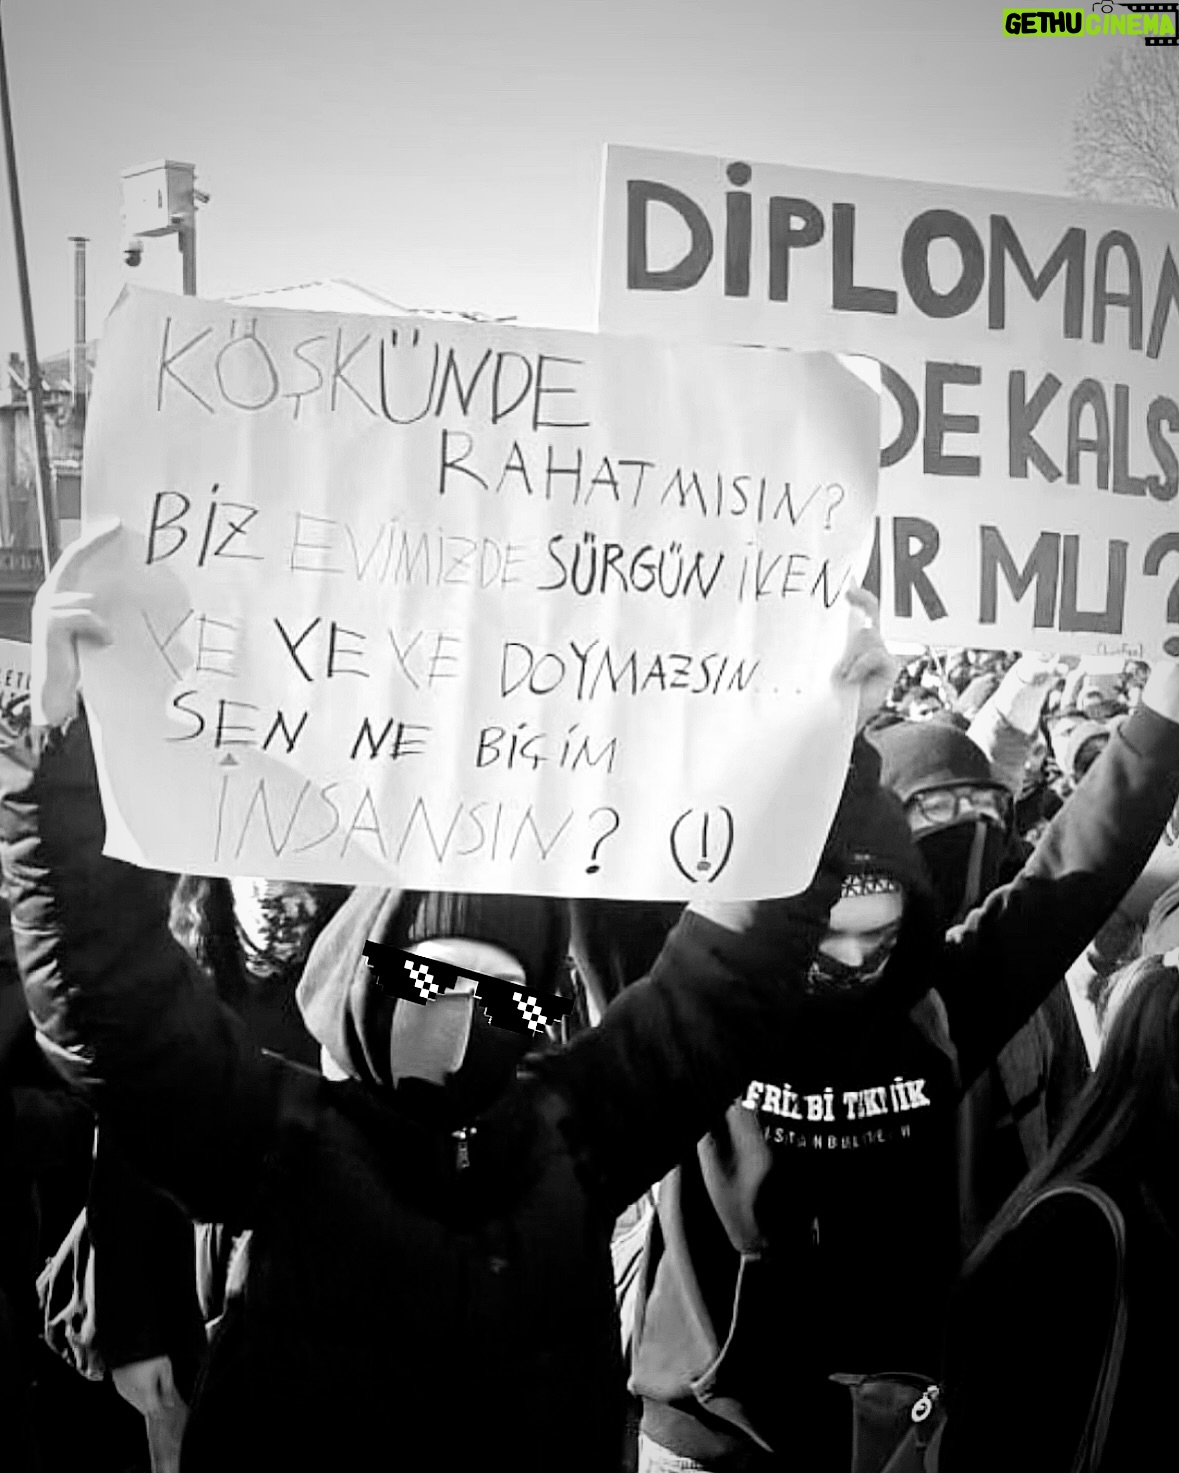 GETHUCINEMA
DİPLOMAN
DE KALS
MU?
KÖŞKÜNDE
RAHATMISIN?
BİZ EVİMİZDE SÜRGÜN İKEN
YE YE YE DOYMAZSIN...
SEN NE BİÇİM
İNSANSIN? (!)
FRİZBİ